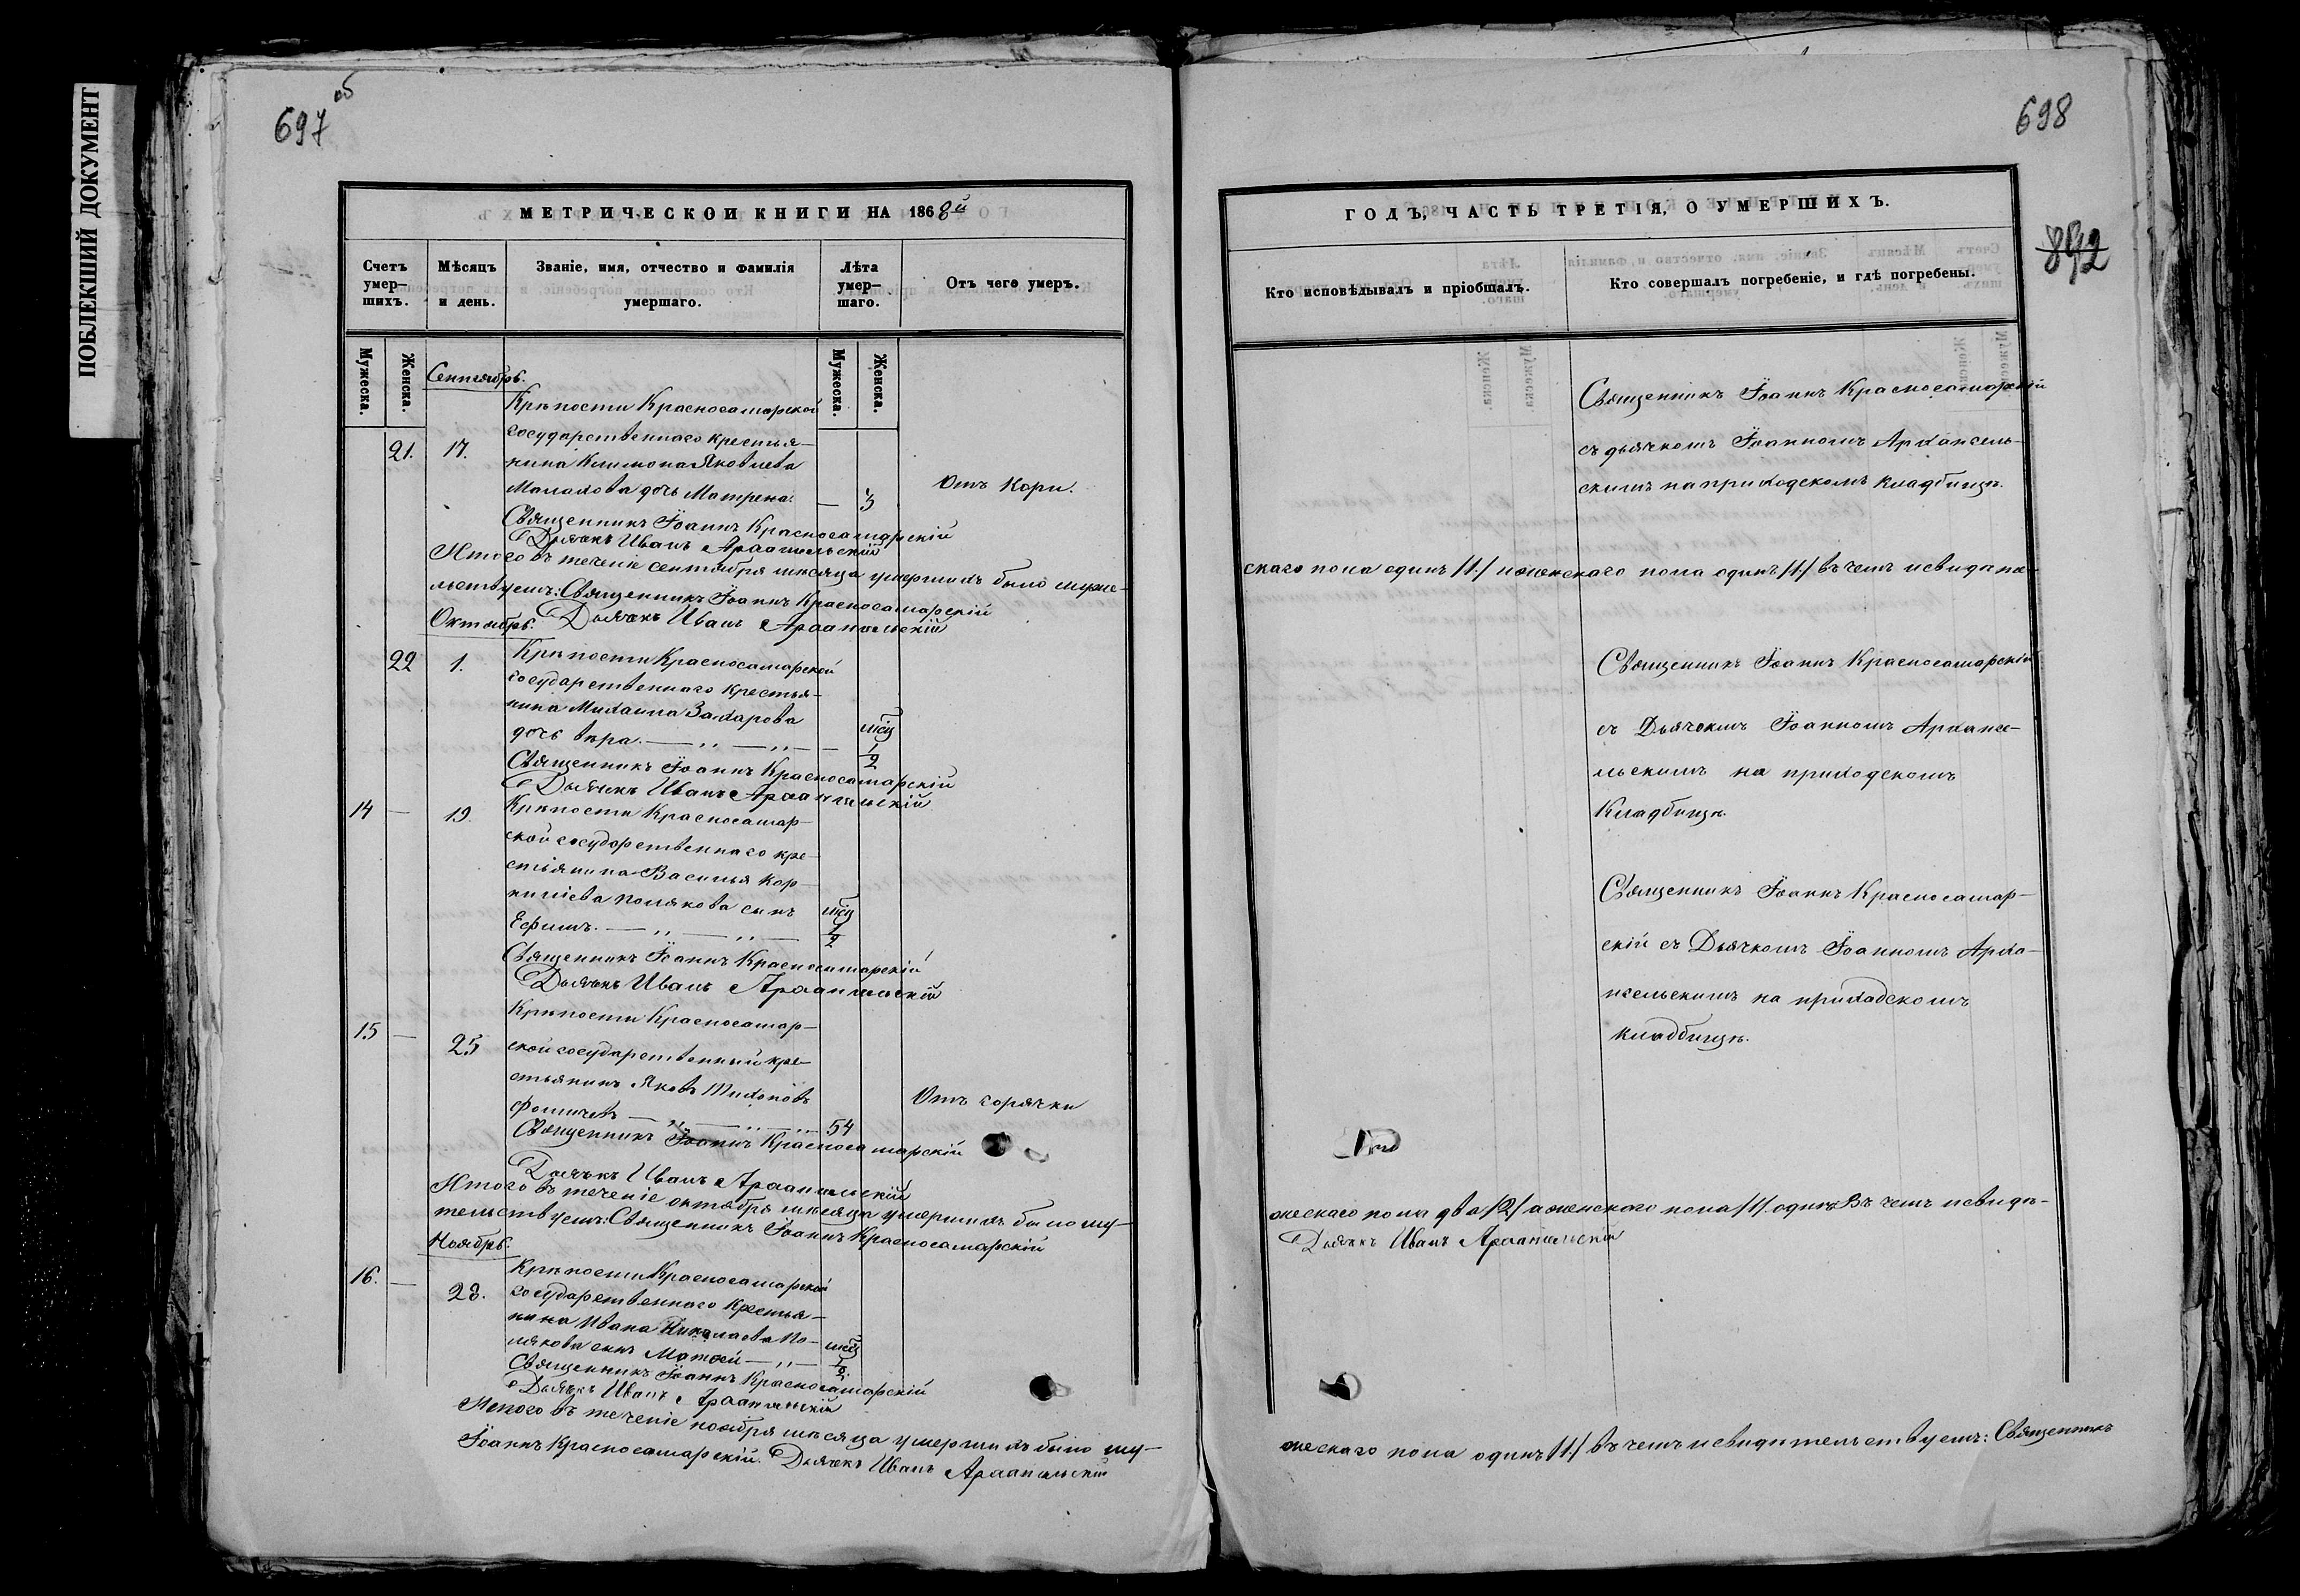 ПОБЛЕКШИЙ ДОКУМЕНТ
697 об
МЕТРИЧЕСКОЙ КНИГИ НА 1868й
Счетъ умер-
шихъ.
Мѣсяцъ
и день.
Званіе, имя, отчество и фамилія
умершаго.
Лѣта
умер-
шаго.
Отъ чего умеръ.
Мужеска.
Женска.
Мужеска.
Женска.
Сентябрь.
Крѣпости Красносамарской
21. 17. государственнаго крестья-
нина Климона Яковлева
Малахова дочь Матрена. — 3
Отъ Кори.
Священникъ Іоаннъ Красносамарскій
Дьячекъ Иванъ Архангельскій
Итого въ теченіе сентября мѣсяца умершихъ было муже-
льствуемъ: Священникъ Іоаннъ Красносамарскій
Октябрь. Дьячекъ Иванъ Архангельскій
22 1. Крѣпости Красносамарской
государственнаго крестья-
нина Михаила Захарова
дочь Вѣра. — „ — „ — мѣц 1/2
Священникъ Іоаннъ Красносамарскій
Дьячекъ Иванъ Архангельскій
14 — 19. Крѣпости Красносамар-
ской государственнаго кре-
стіянина Василья Кор-
нилiева Полякова сынъ
Ефимъ. — „ — „ — мѣц 1/2
Священникъ Іоаннъ Красносамарскій
Дьячекъ Иванъ Архангельскій
15 — 25 Крѣпости Красносамар-
ской государственный кре-
стьянинъ Яковъ Тихоновъ
Фомичевъ — „ — „ — „ 54
Отъ горячки
Священникъ Іоаннъ Красносамарскій
Дьячекъ Иванъ Архангельскій
Итого въ теченіе октября мѣсяца умершихъ было му-
тельствуемъ: Священникъ Іоаннъ Красносамарскій
Ноябрь.
16. — 23. Крѣпости Красносамарской
государственнаго крестья-
нина Ивана Николаева По-
лякова сынъ Матвей — „ — мѣц
Священникъ Іоаннъ Красносамарскій
Дьячекъ Иванъ Архангельскій
Итого въ теченіе ноября мѣсяца умершихъ было му-
Іоаннъ Красносамарскій. Дьячекъ Иванъ Архангельскій
698
892
ГОДЪ, ЧАСТЬ ТРЕТІЯ, О УМЕРШИХЪ.
Кто исповѣдывалъ и пріобщалъ.
Кто совершалъ погребеніе, и гдѣ погребены.
Священникъ Іоаннъ Красносамарскій
съ дьячкомъ Іоанномъ Архангель-
скимъ на приходскомъ кладбищѣ.
скаго пола одинъ /1./ и женскаго пола одинъ /1./ въ чемъ и свидѣте-
Священникъ Іоаннъ Красносамарскій
съ Дьячкомъ Іоанномъ Арханге-
льскимъ на приходскомъ
Кладбищѣ.
Священникъ Іоаннъ Красносамар-
скій съ Дьячкомъ Іоанномъ Арха-
нгельскимъ на приходскомъ
кладбищѣ.
жескаго пола два /2/ а женскаго пола /1/. одинъ Въ чемъ и свидѣ-
Дьячекъ Иванъ Архангельскій
жескаго пола одинъ /1./ въ чемъ и свидѣтельствуемъ: Священникъ